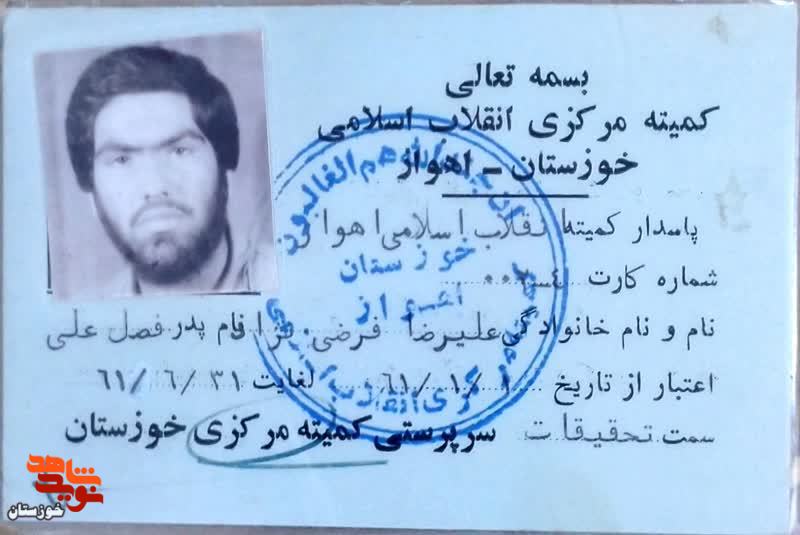 بسمه تعالی
کمیته مرکزی انقلاب اسلامی
خوزستان ـ اهواز
پاسدار کمیته انقلاب اسلامی اهواز
شماره کارت
نام و نام خانوادگی علیرضا فرضی نام پدر فضل علی
اعتبار از تاریخ ۶۱/۱/۱ لغایت ۶۱/۶/۳۱
سمت تحقیقات سرپرستی کمیته مرکزی خوزستان
حزب الله هم الغالبون
خوزستان
اهواز
نوید شاهد
خوزستان